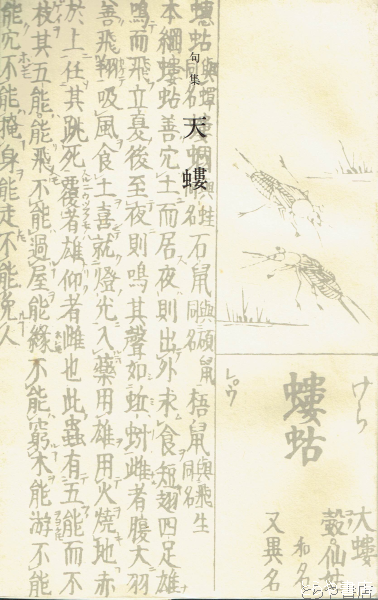 句集 天螻
螻蛄
けら
レウ
大螻
穀
仙姑
和名
又異名
螻蛄
石鼠
梧鼠
本綱螻蛄善穴土而居夜則出外求食短翅四足雄
鳴而飛立夏後至夜則鳴其聲如蚯蚓雌者腹大羽
善飛翔吸風食土喜就燈光入藥用雄用火燒地赤
於上任其跳死覆者雄仰者雌也此蟲有五能而不
技其五能能飛不能過屋能緣不能窮木能游不能
能穴不能掩身能走不能免人
とらや書店